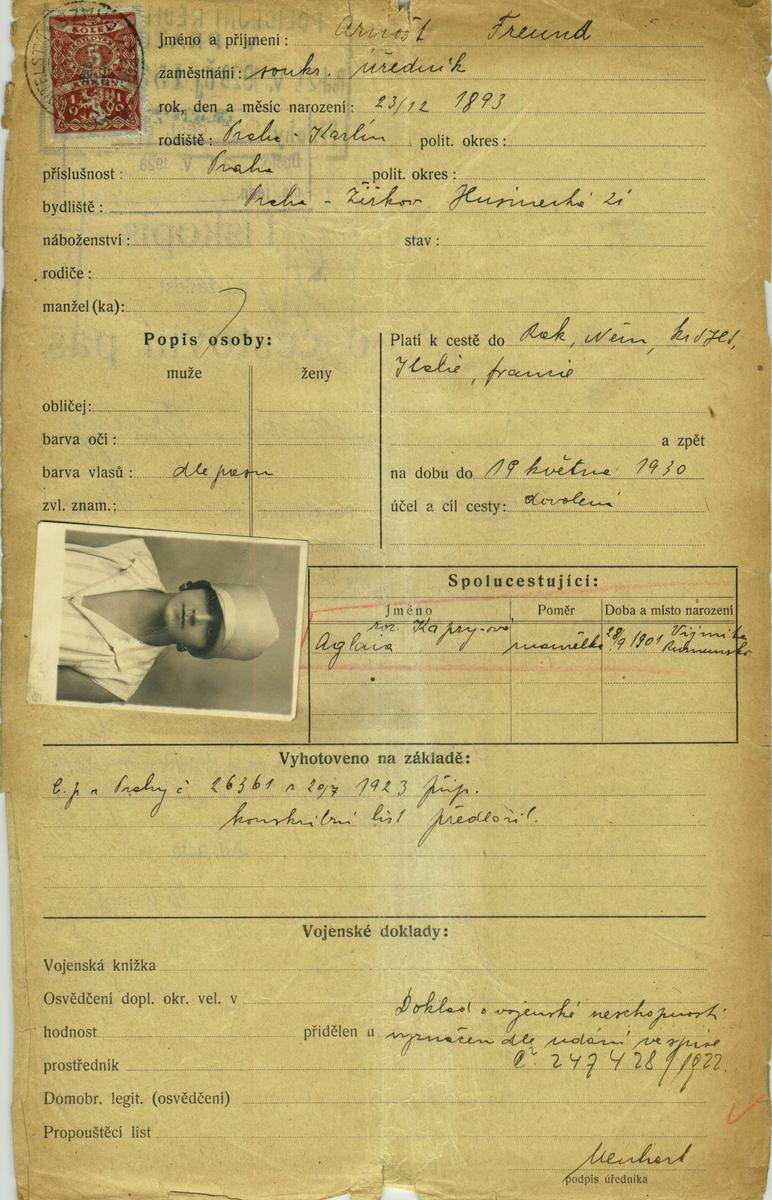 KOLEK
5
KORUN
1919
Jméno a příjmení : Arnošt Freund
zaměstnání : soukr. úředník
rok, den a měsíc narození : 23/12 1893
rodiště : Praha - Karlín polit. okres :
příslušnost : Praha polit. okres :
bydliště : Praha - Žižkov Husinecká 21
náboženství : stav :
rodiče :
manžel (ka):
Popis osoby:
muže ženy
obličej:
barva očí :
barva vlasů : dle pasu
zvl. znam.:
Platí k cestě do Rak, Něm,
Italie, francie
a zpět
na dobu do 19 května 1930
účel a cíl cesty: dovolená
Spolucestující:
Jméno Poměr Doba a místo narození
roz. Kapry-ová
Aglaia manželka 28/9 1901 Rumunsko
Vyhotoveno na základě:
c. p. z Prahy č 26361 z 20/7 1923 přip.
konskribční list předložil.
Vojenské doklady:
Vojenská knížka
Osvědčení dopl. okr. vel. v
hodnost přidělen u
prostředník
Domobr. legit. (osvědčení)
Propouštěcí list
Doklad o vojenské neschopnosti
vyznačen dle udání ve spise
č. 247428/1922.
podpis úředníka